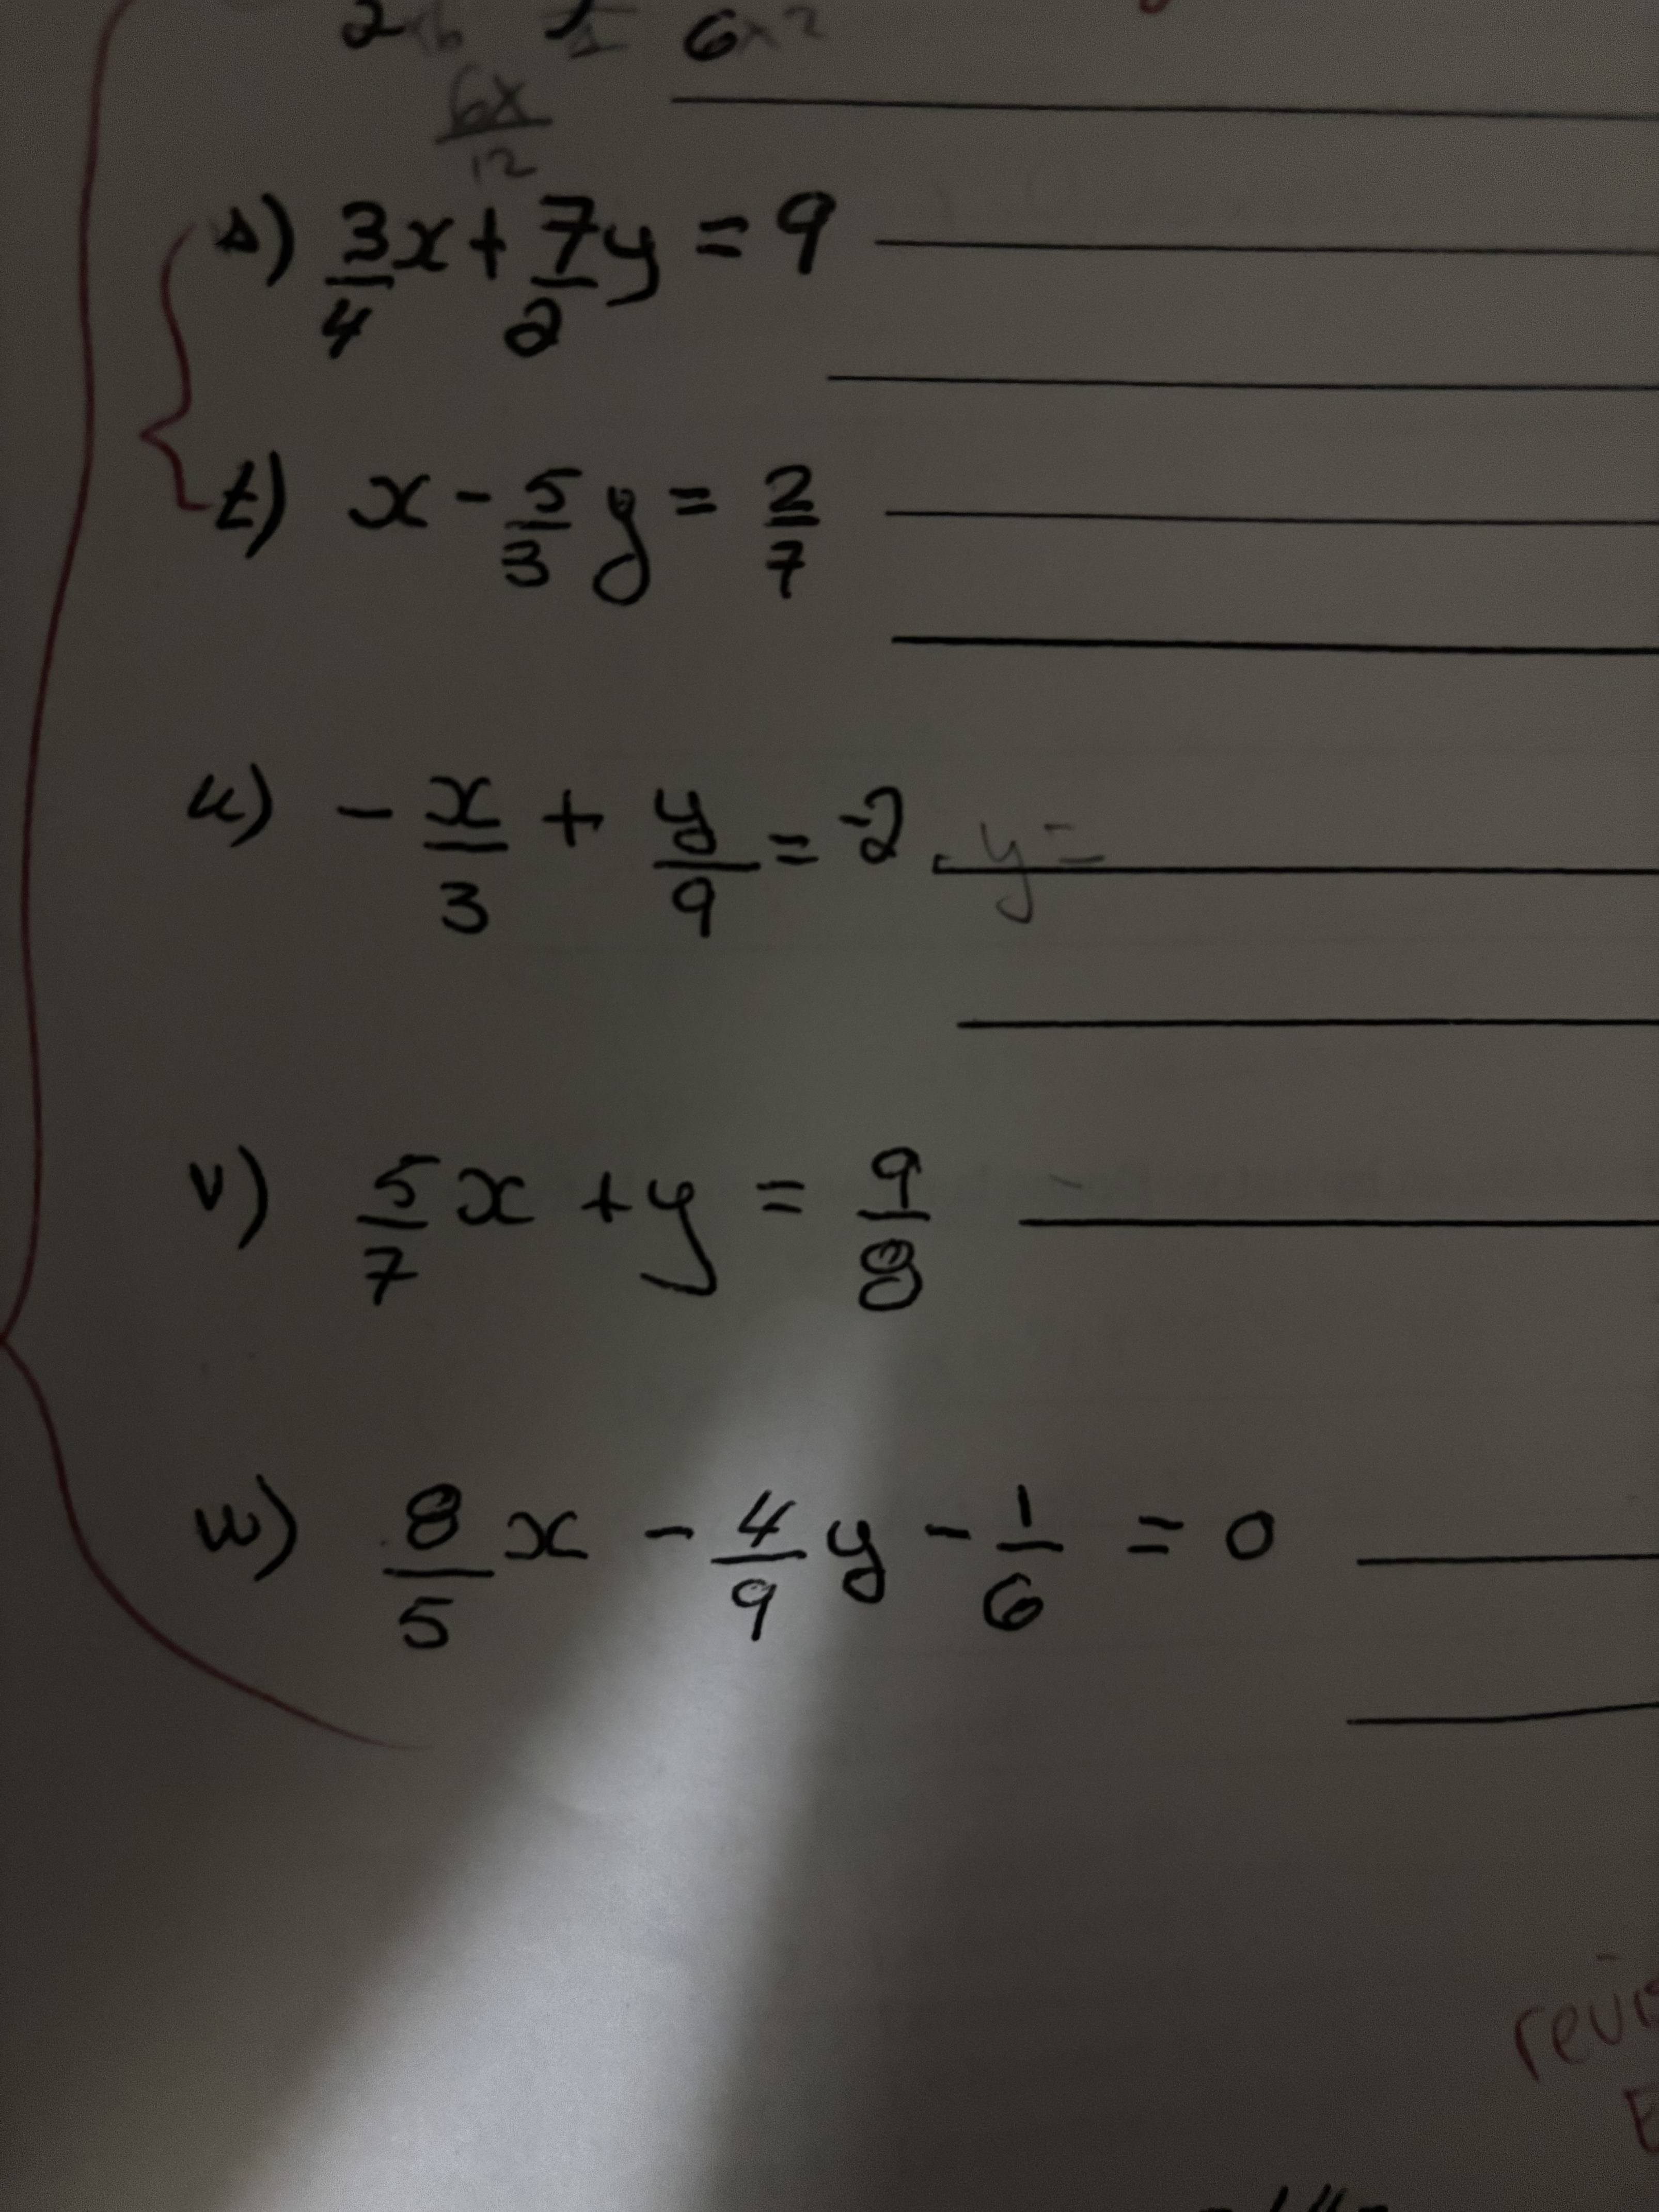 2x6 6x2
6x/12
s) 3/4 x + 7/2 y = 9
t) x - 5/3 y = 2/7
u) - x/3 + y/9 = -2 y =
v) 5/7 x + y = 9/8
w) 8/5 x - 4/9 y - 1/6 = 0